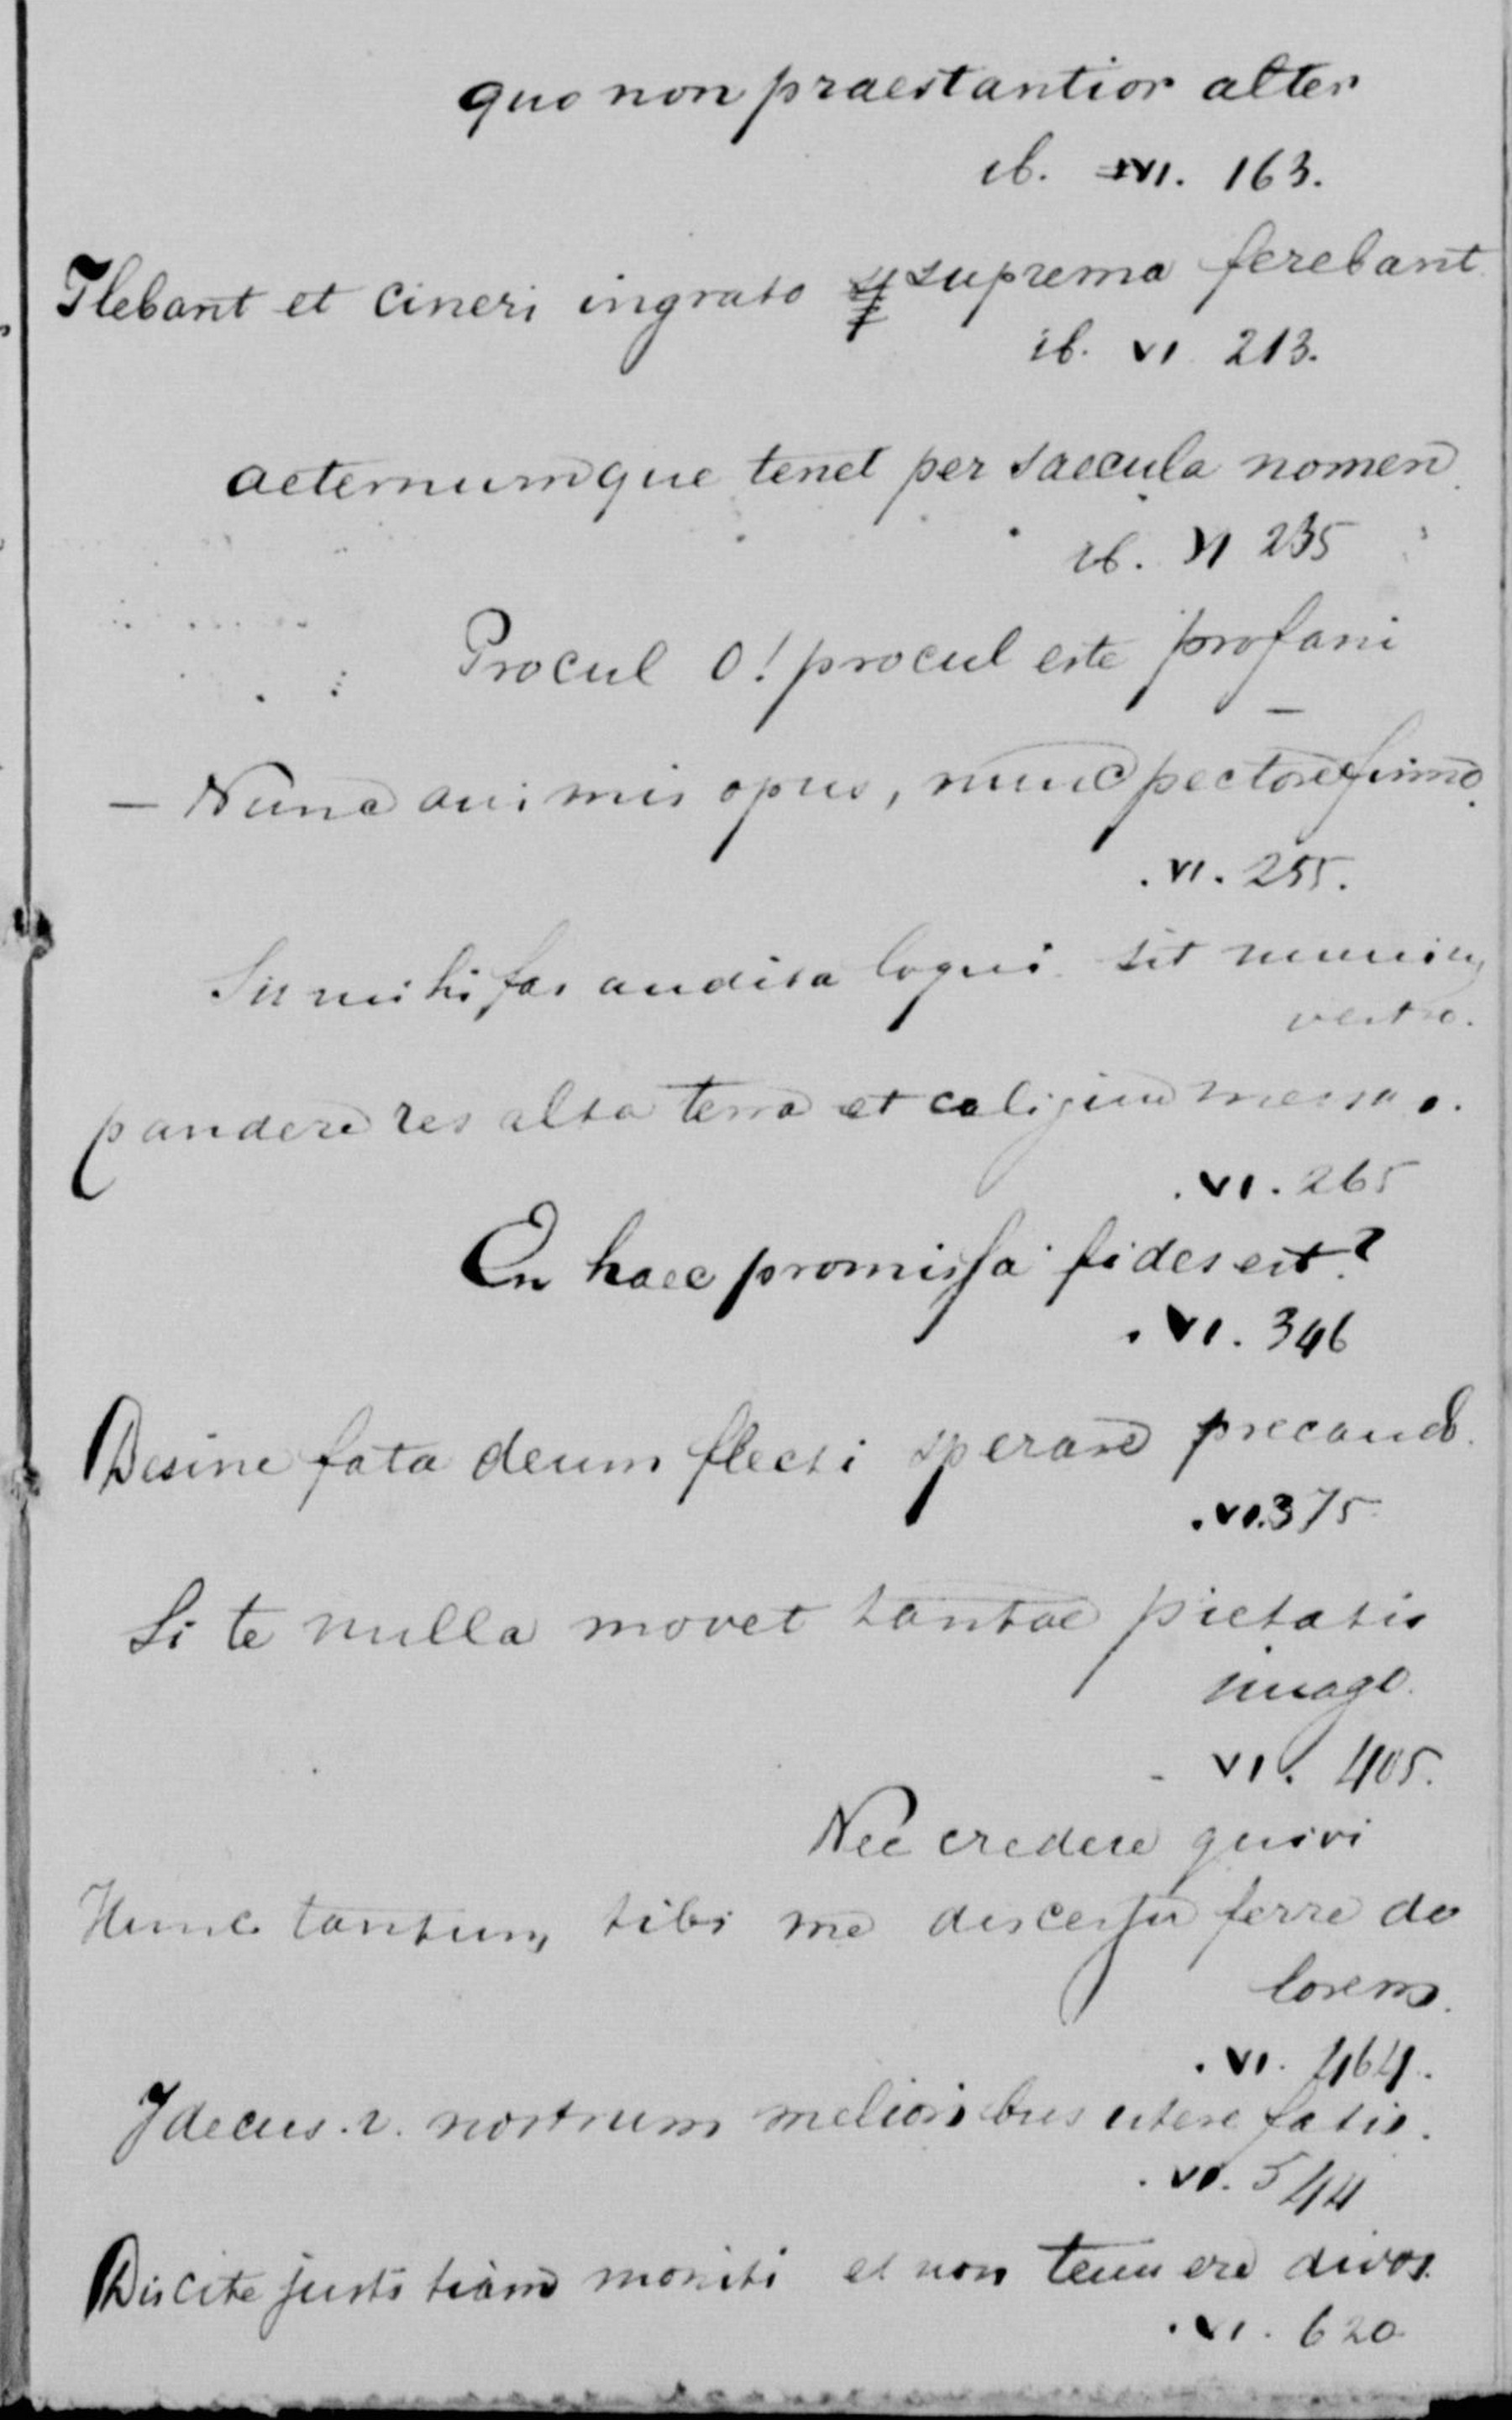 quo non praestantior alter
ib. VI. 163.
Flebant et cineri ingrato suprema ferebant
ib. VI 213.
aeternumque tenet per saecula nomen.
ib. VI 235
Procul O! procul este profani
— Nunc animis opus, nunc pectore firmo.
. VI. 255.
Sit mihi fas audita loqui sit numine
vestro.
pandere res alta terra et caligine mersas.
. VI. 265
En haec promissa fides est?
. VI. 346
Desine fata deum flecti sperare precando.
. VI. 375
Si te nulla movet tantae pietatis
imago.
- VI. 405.
Nec credere quivi
Hunc tantum tibi me discessu ferre do
lorem.
. VI. 464.
I decus. I. nostrum melioribus utere fatis.
. VI. 544
Discite justitiam moniti et non temnere divos.
. VI. 620